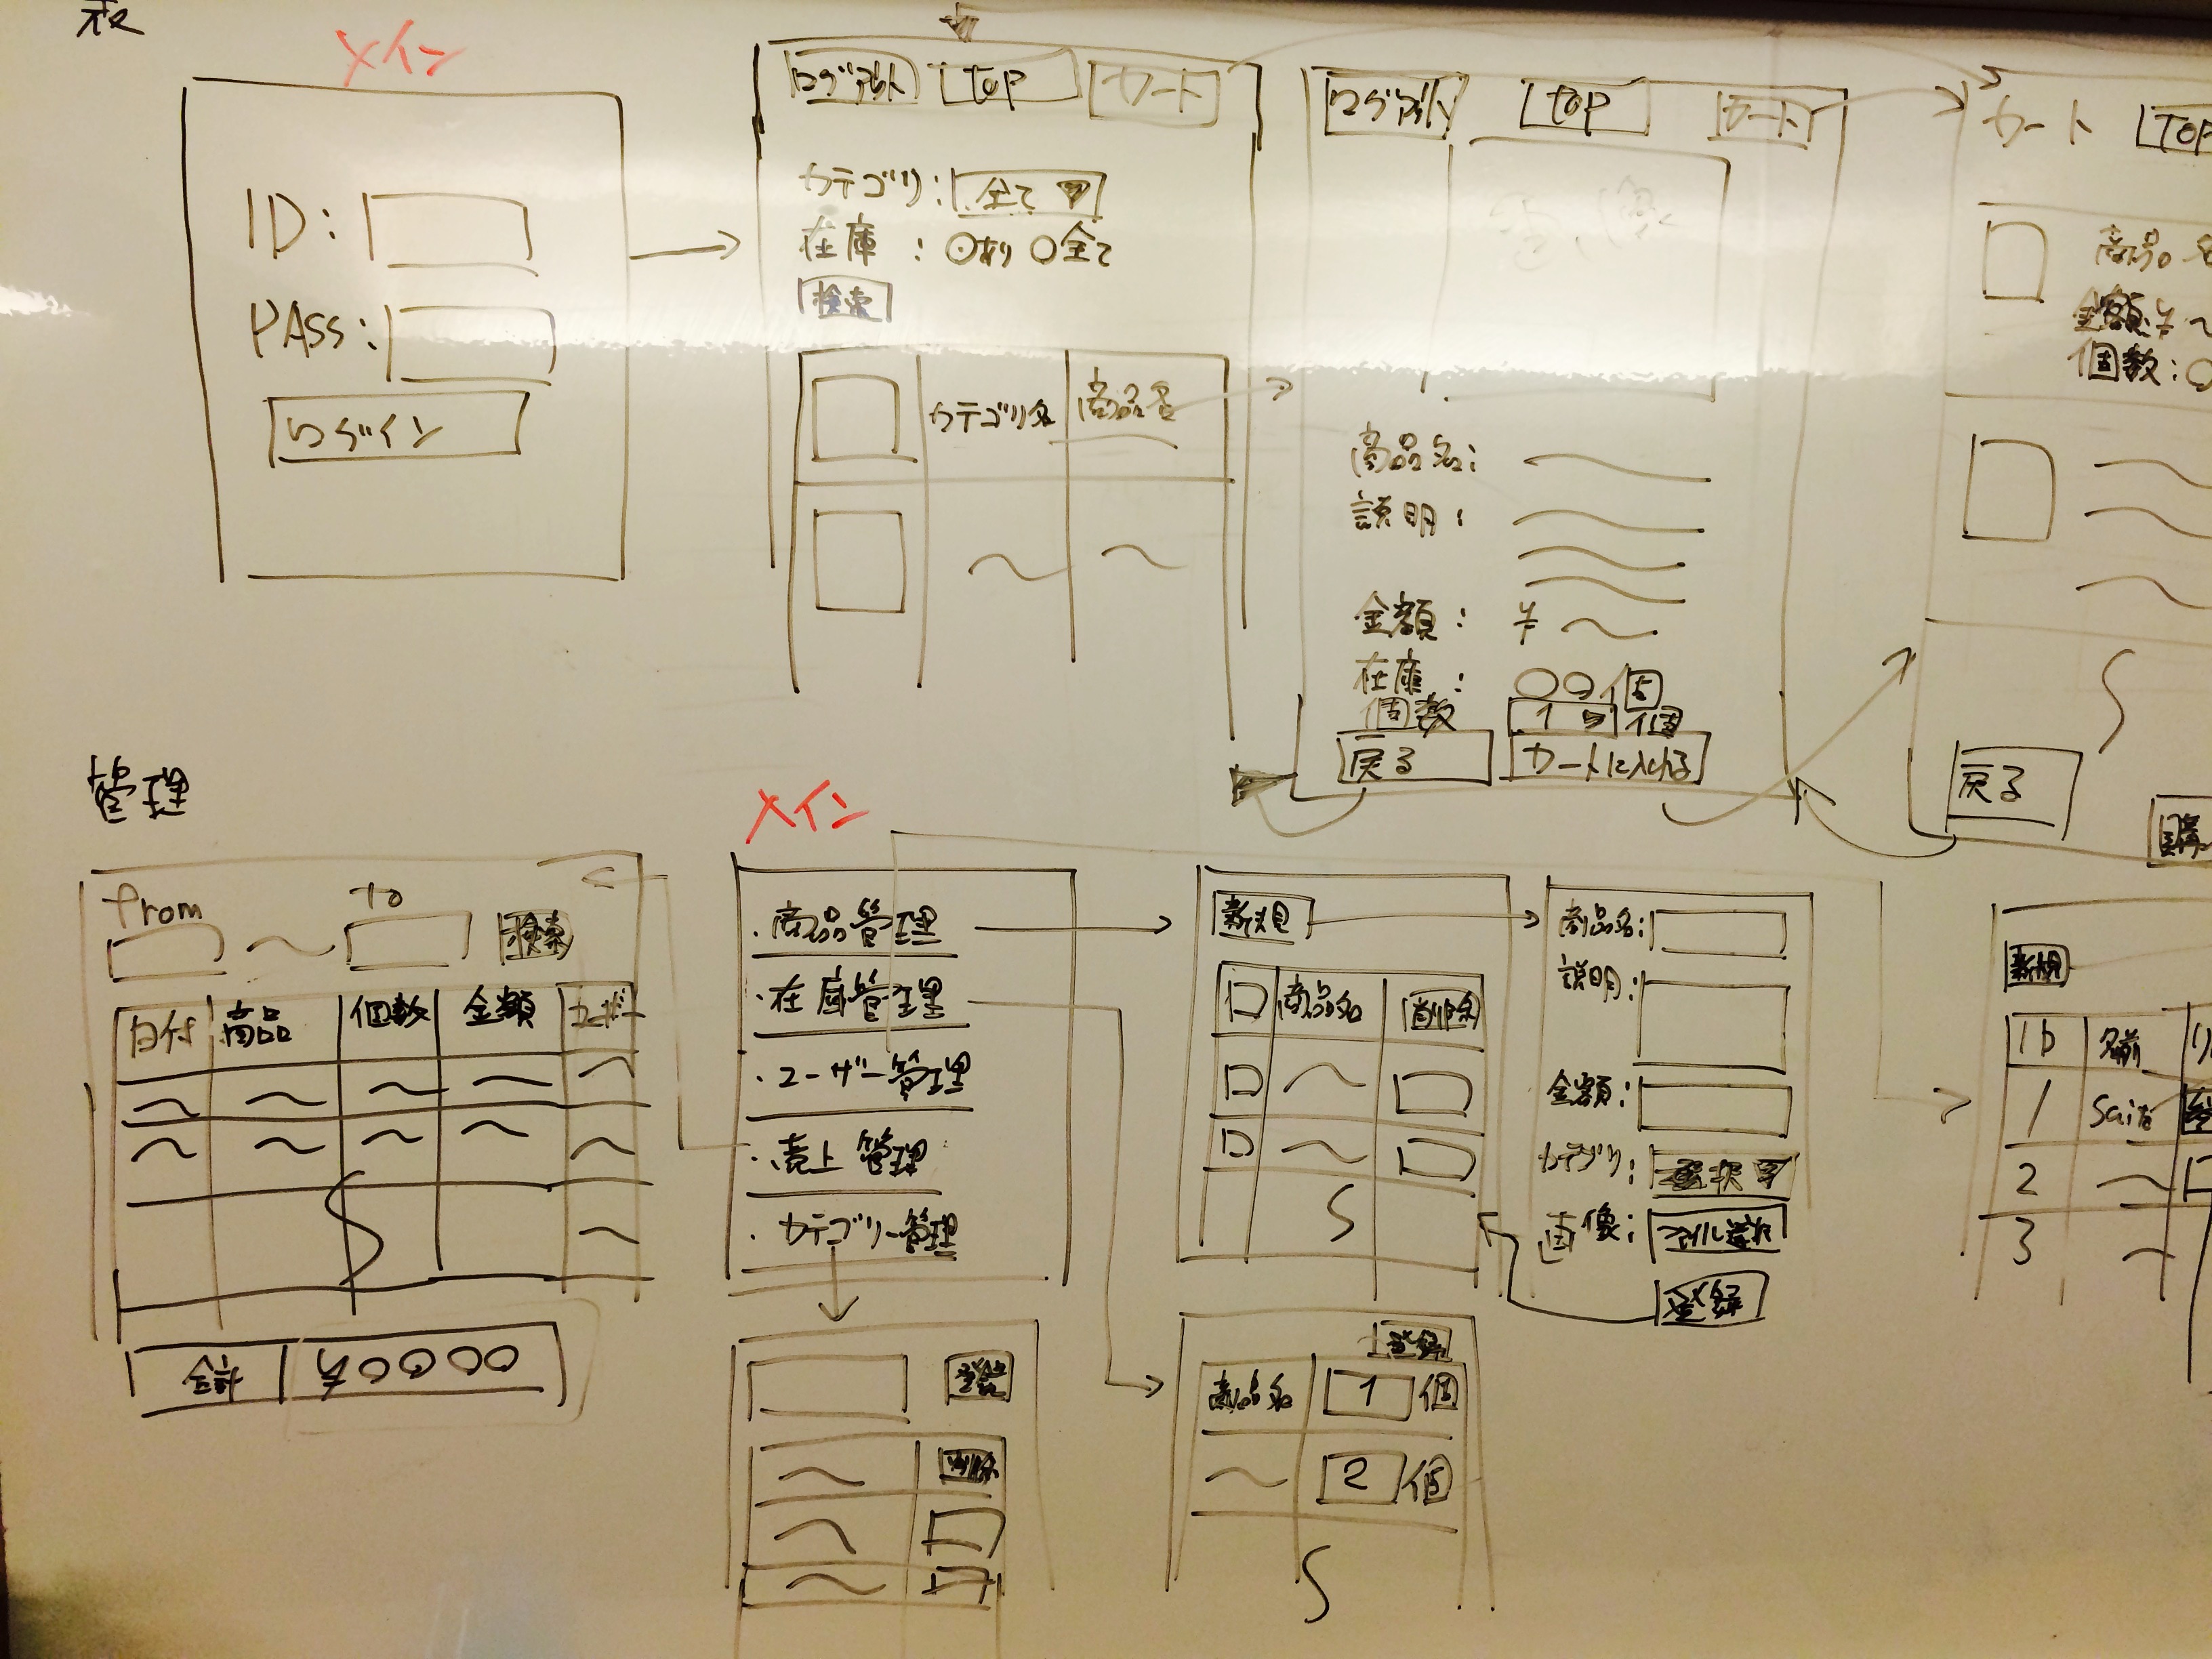 表
メイン
ID:
PASS:
ログイン
ログアウト TOP カート
カテゴリ: 全て▼
在庫 : ⦿あり ○全て
検索
カテゴリ名 商品名
〜 〜
ログアウト TOP カート
商品名:
説明:
金額: ¥〜
在庫: ○○個
個数 1 個
戻る カートに入れる
カート TOP
商品名
金額:¥〜
個数:○
戻る
管理
from to
〜 検索
日付 商品 個数 金額 ユーザー
合計 ¥○○○○○
メイン
・商品管理
・在庫管理
・ユーザー管理
・売上管理
・カテゴリー管理
登録
削除
新規
商品名 削除
商品名:
説明:
金額:
カテゴリ: 選択▼
画像: ファイル選択
登録
登録
商品名 1 個
〜 2 個
新規
ID 名前
1
2 〜
3 〜